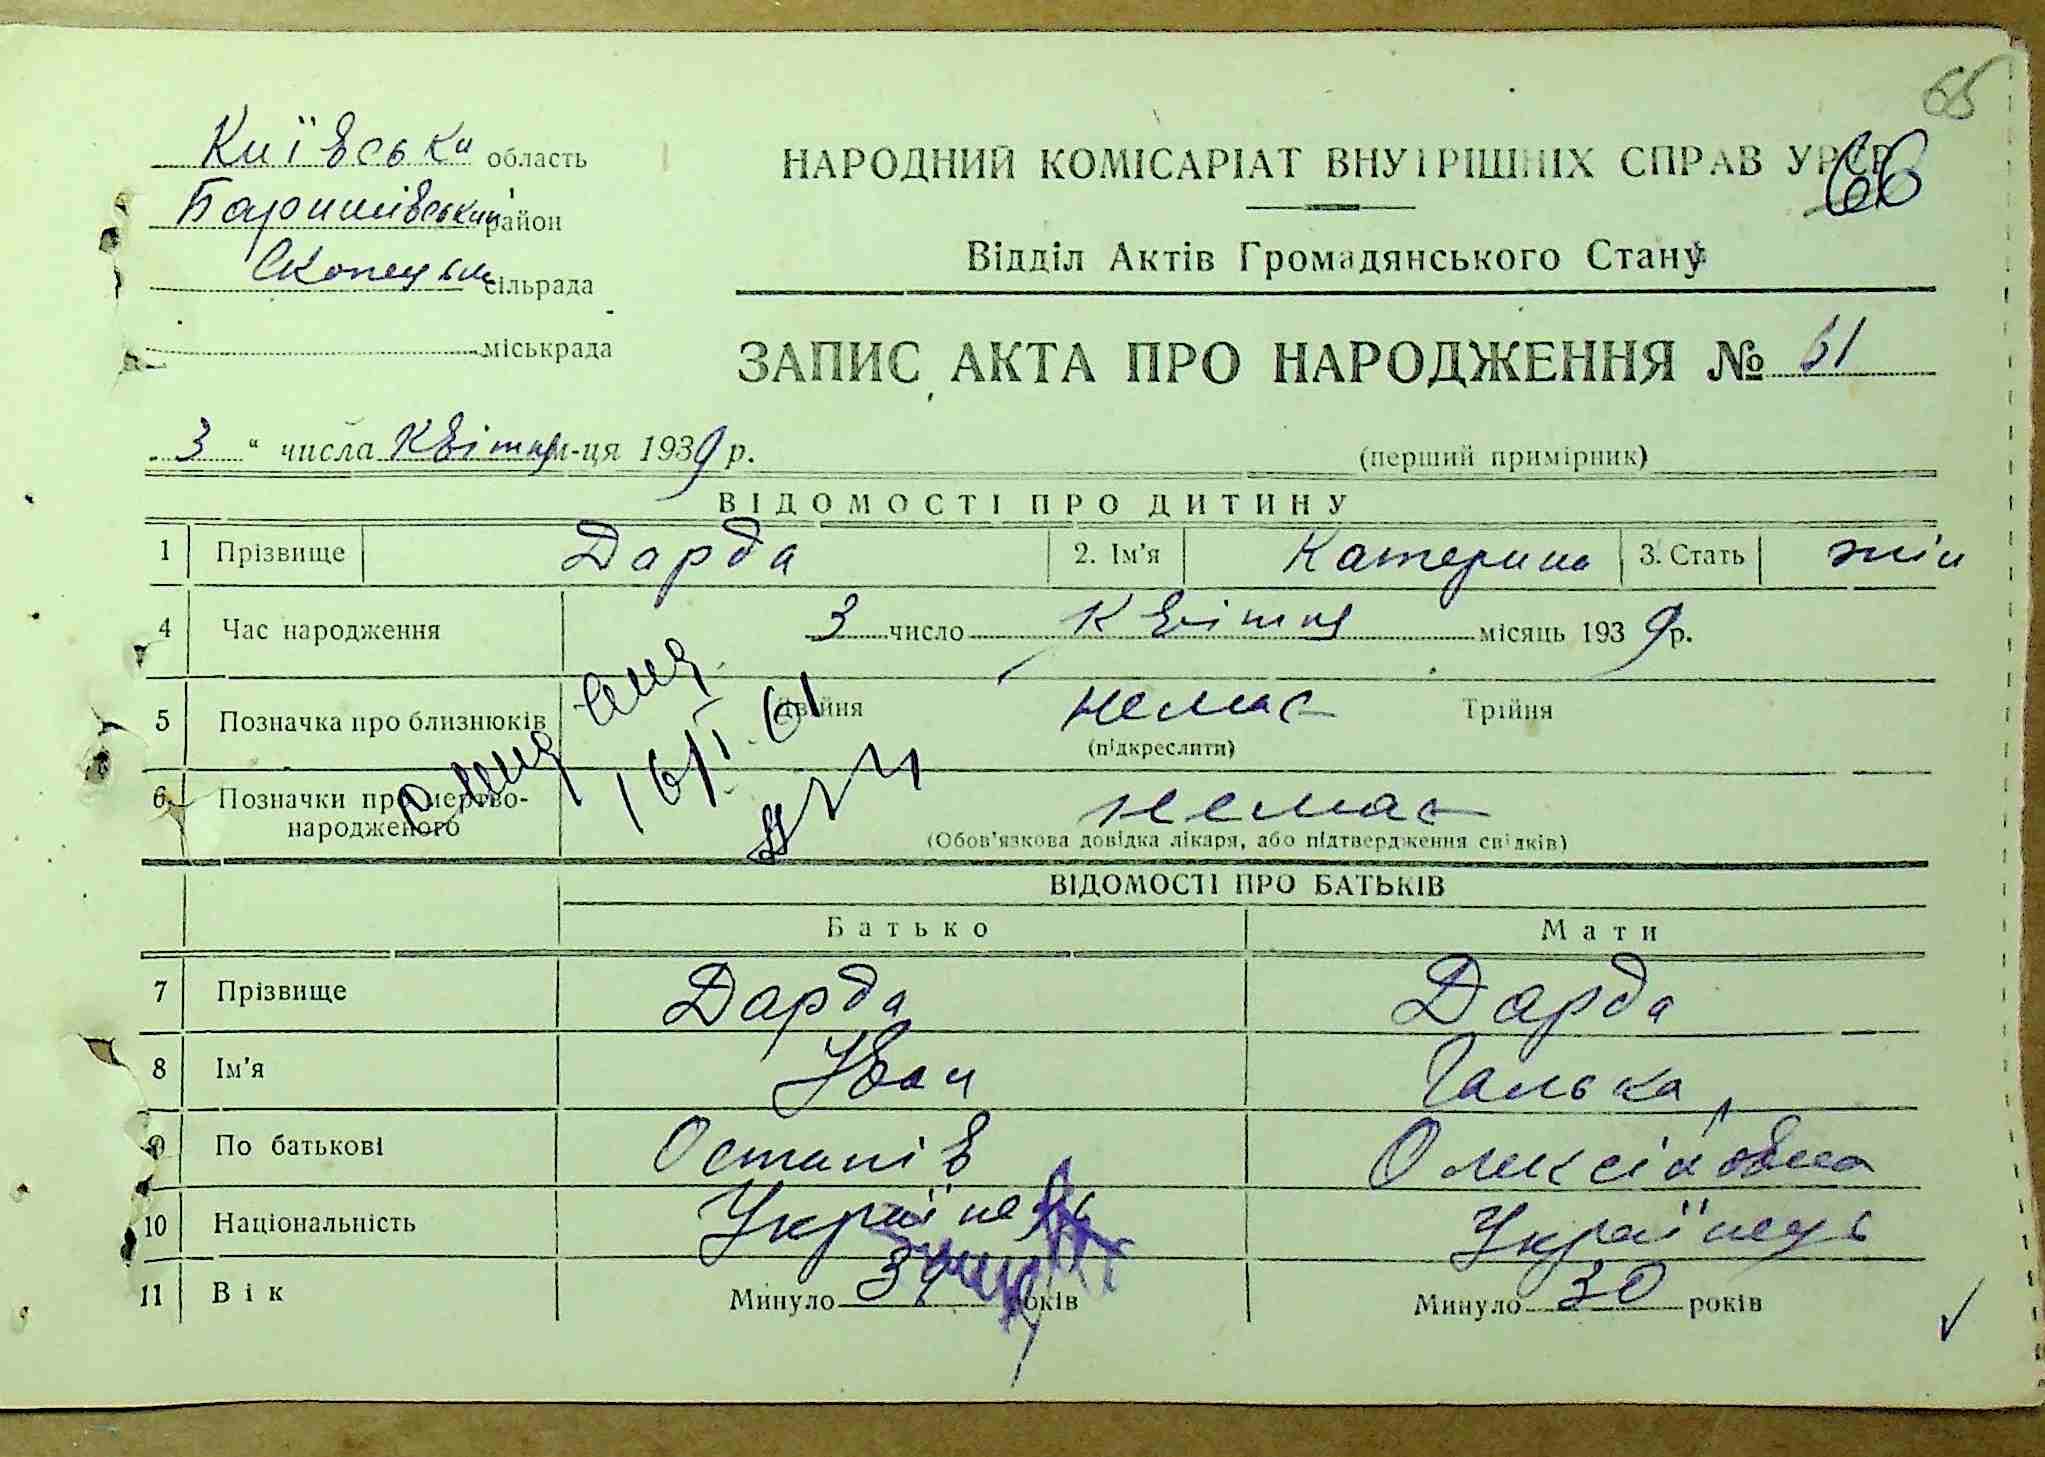 65
66
Київська область
Баришівський район
Скопецька сільрада
міськрада
НАРОДНИЙ КОМІСАРІАТ ВНУТРІШНІХ СПРАВ УРСР
Відділ Актів Громадянського Стану
ЗАПИС АКТА ПРО НАРОДЖЕННЯ № 61
3 " числа Квітня м-ця 1939 р.
(перший примірник)
ВІДОМОСТІ ПРО ДИТИНУ
1 Прізвище Дарда 2. Ім'я Катерина 3. Стать жін
4 Час народження 3 число Квітня місяць 1939 р.
5 Позначка про близнюків Двійня немає Трійня
(підкреслити)
16/І 61
6 Позначки про мертвонародженого немає
(Обов'язкова довідка лікаря, або підтвердження свідків)
ВІДОМОСТІ ПРО БАТЬКІВ
Батько Мати
7 Прізвище Дарда Дарда
8 Ім'я Іван Галька
9 По батькові Остапів Олексійовна
10 Національність Українець Українець
11 Вік Минуло 39 років Минуло 30 років